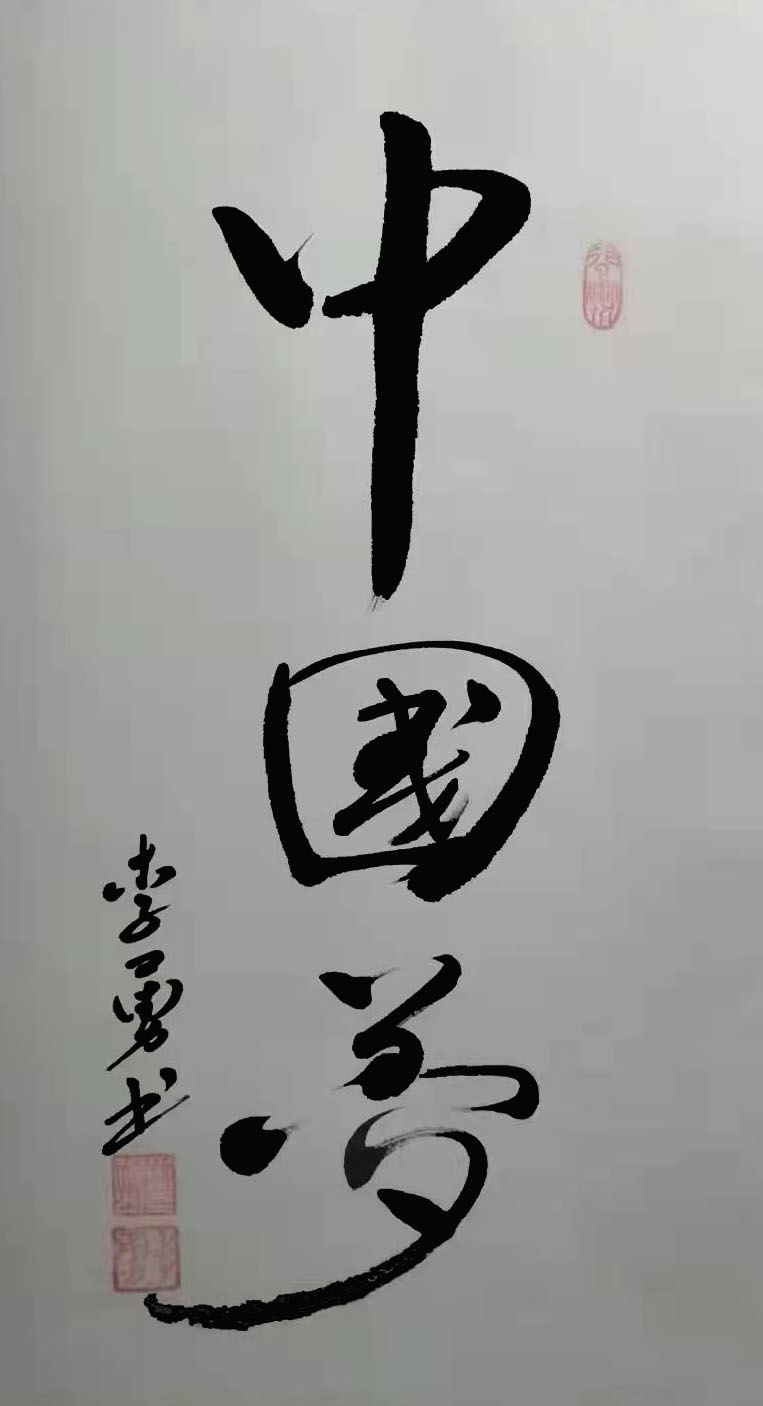 中國夢
李勇书